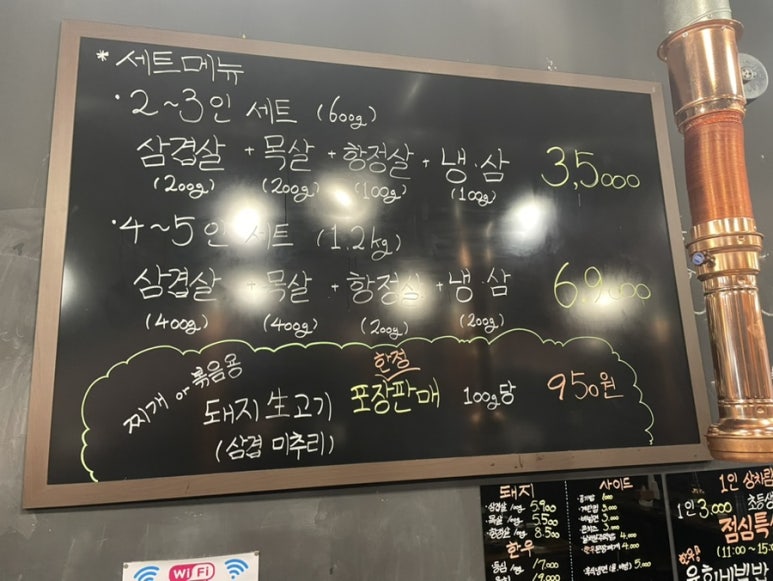 * 세트메뉴
· 2~3인 세트 (600g)
삼겹살 + 목살 + 항정살 + 냉·삼 3,5000
(200g) (200g) (100g) (100g)
· 4~5인 세트 (1.2kg)
삼겹살 + 목살 + 항정살 + 냉·삼 6.9000
(400g) (400g) (200g) (200g)
찌개 or 볶음용
한정
돼지 生고기 포장판매 100g당 950원
(삼겹 미추리)
돼지
5.900
5.500
8.500
한우
17000
19.000
사이드
4.000
4.000
5.000
1인 상차림
1인 3.000 초등생
점심특
(11:00~15:
WiFi